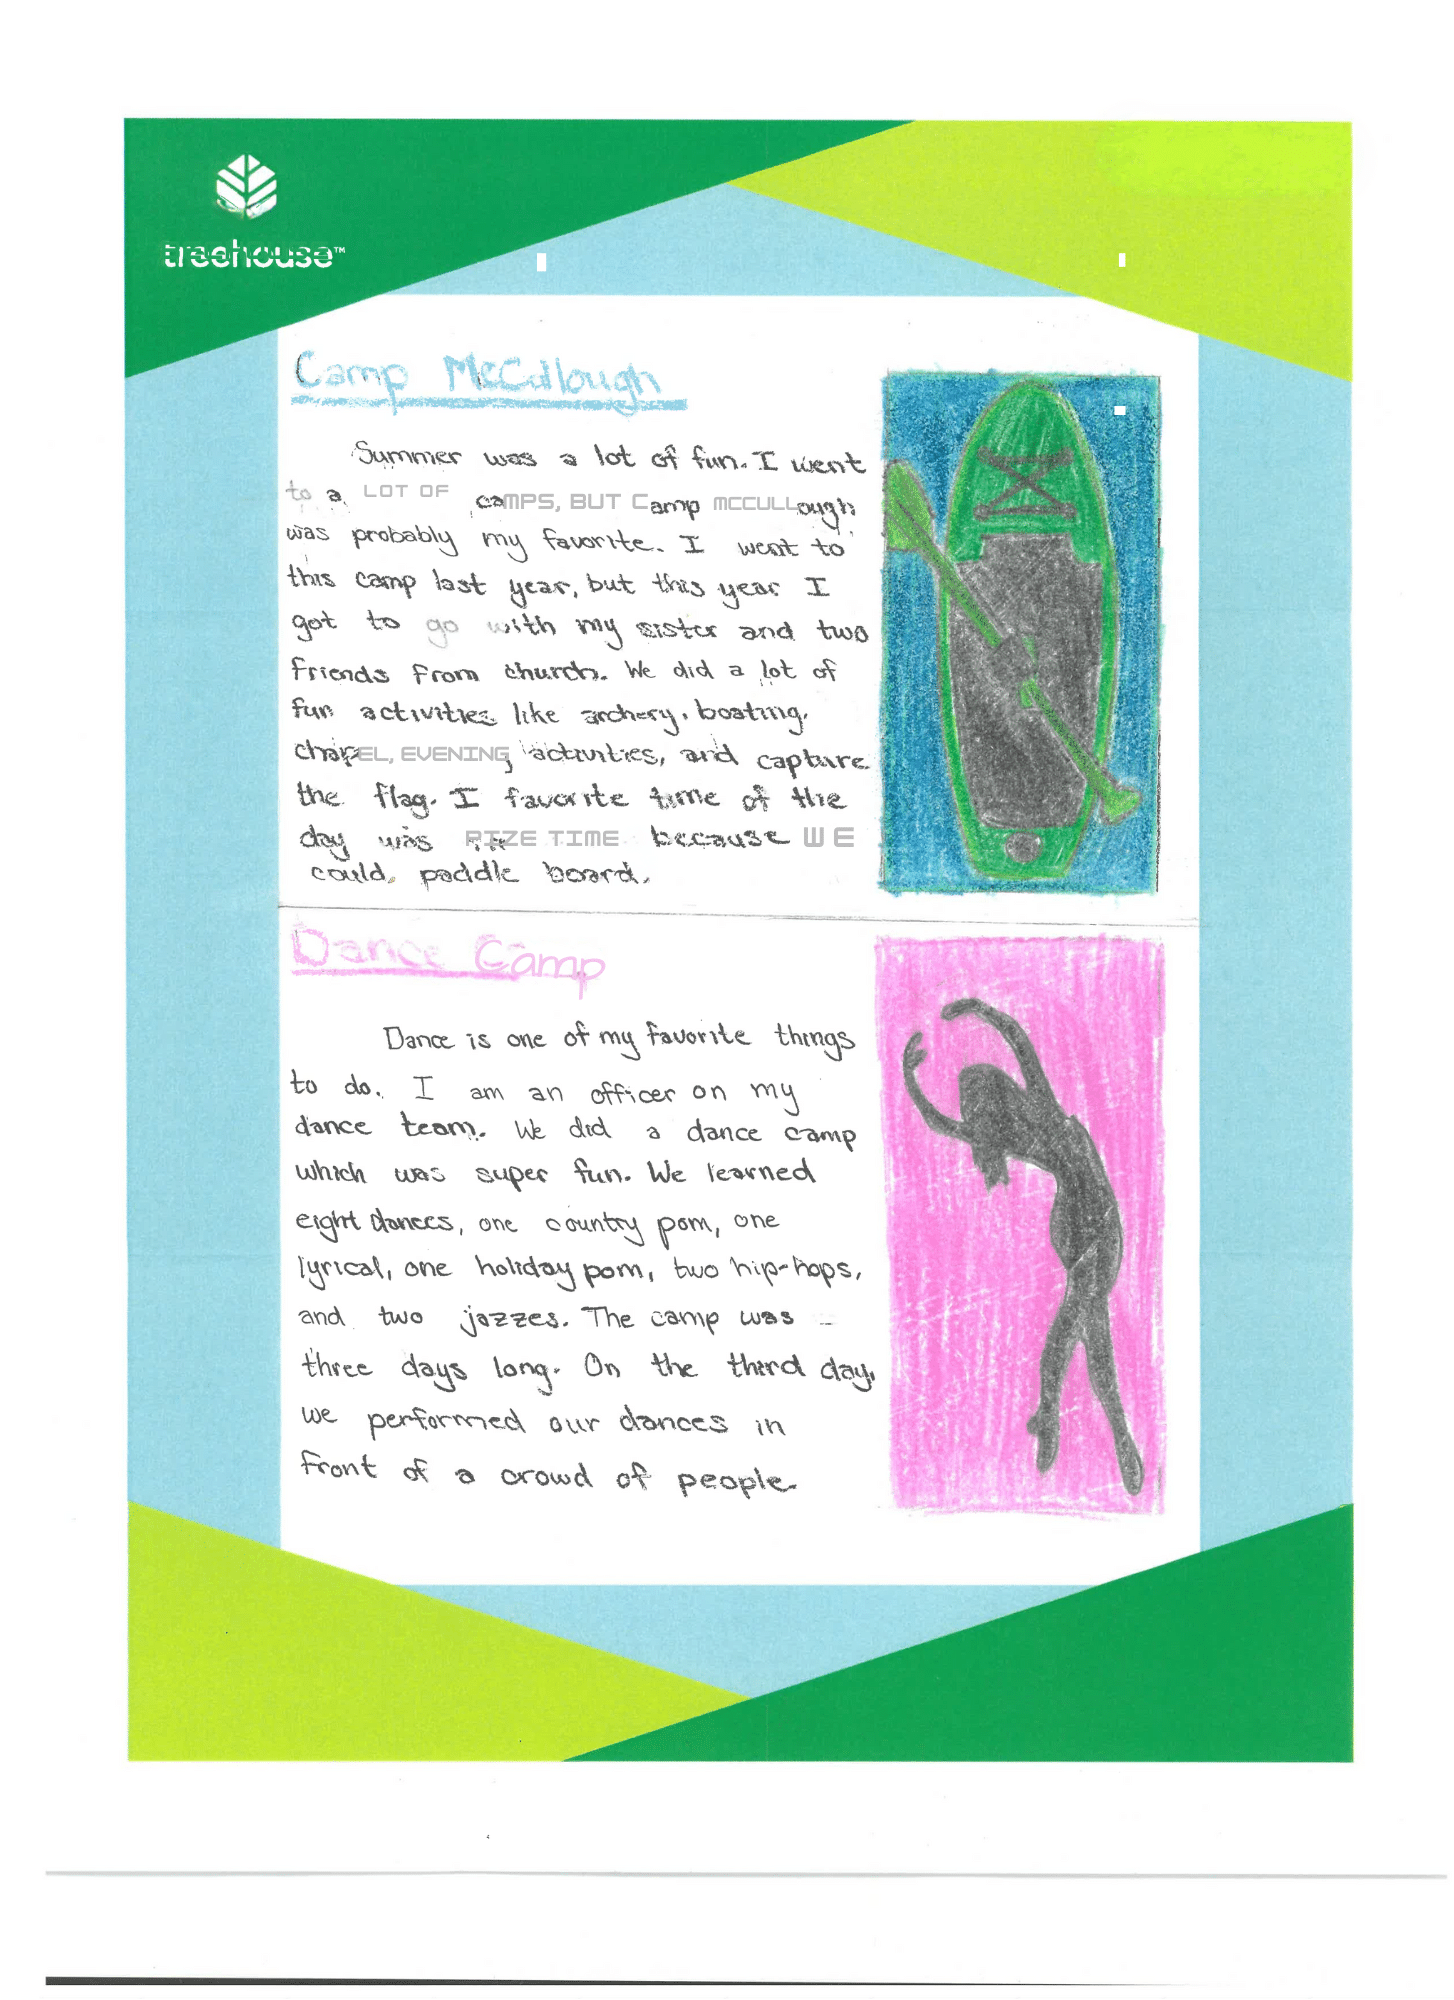 treehouse™
Camp McCullough
Summer was a lot of fun. I went
to a LOT OF caMPS, BUT Camp MCCULLough
was probably my favorite. I went to
this camp last year, but this year I
got to go with my sister and two
friends from church. We did a lot of
fun activities like archery, boating,
chapEL, EVENING activities, and capture
the flag. I favorite time of the
day was RIZE TIME because WE
could, paddle board.
Dance Camp
Dance is one of my favorite things
to do. I am an officer on my
dance team. We did a dance camp
which was super fun. We learned
eight dances, one country pom, one
lyrical, one holiday pom, two hip-hops,
and two jazzes. The camp was
three days long. On the third day,
we performed our dances in
front of a crowd of people.